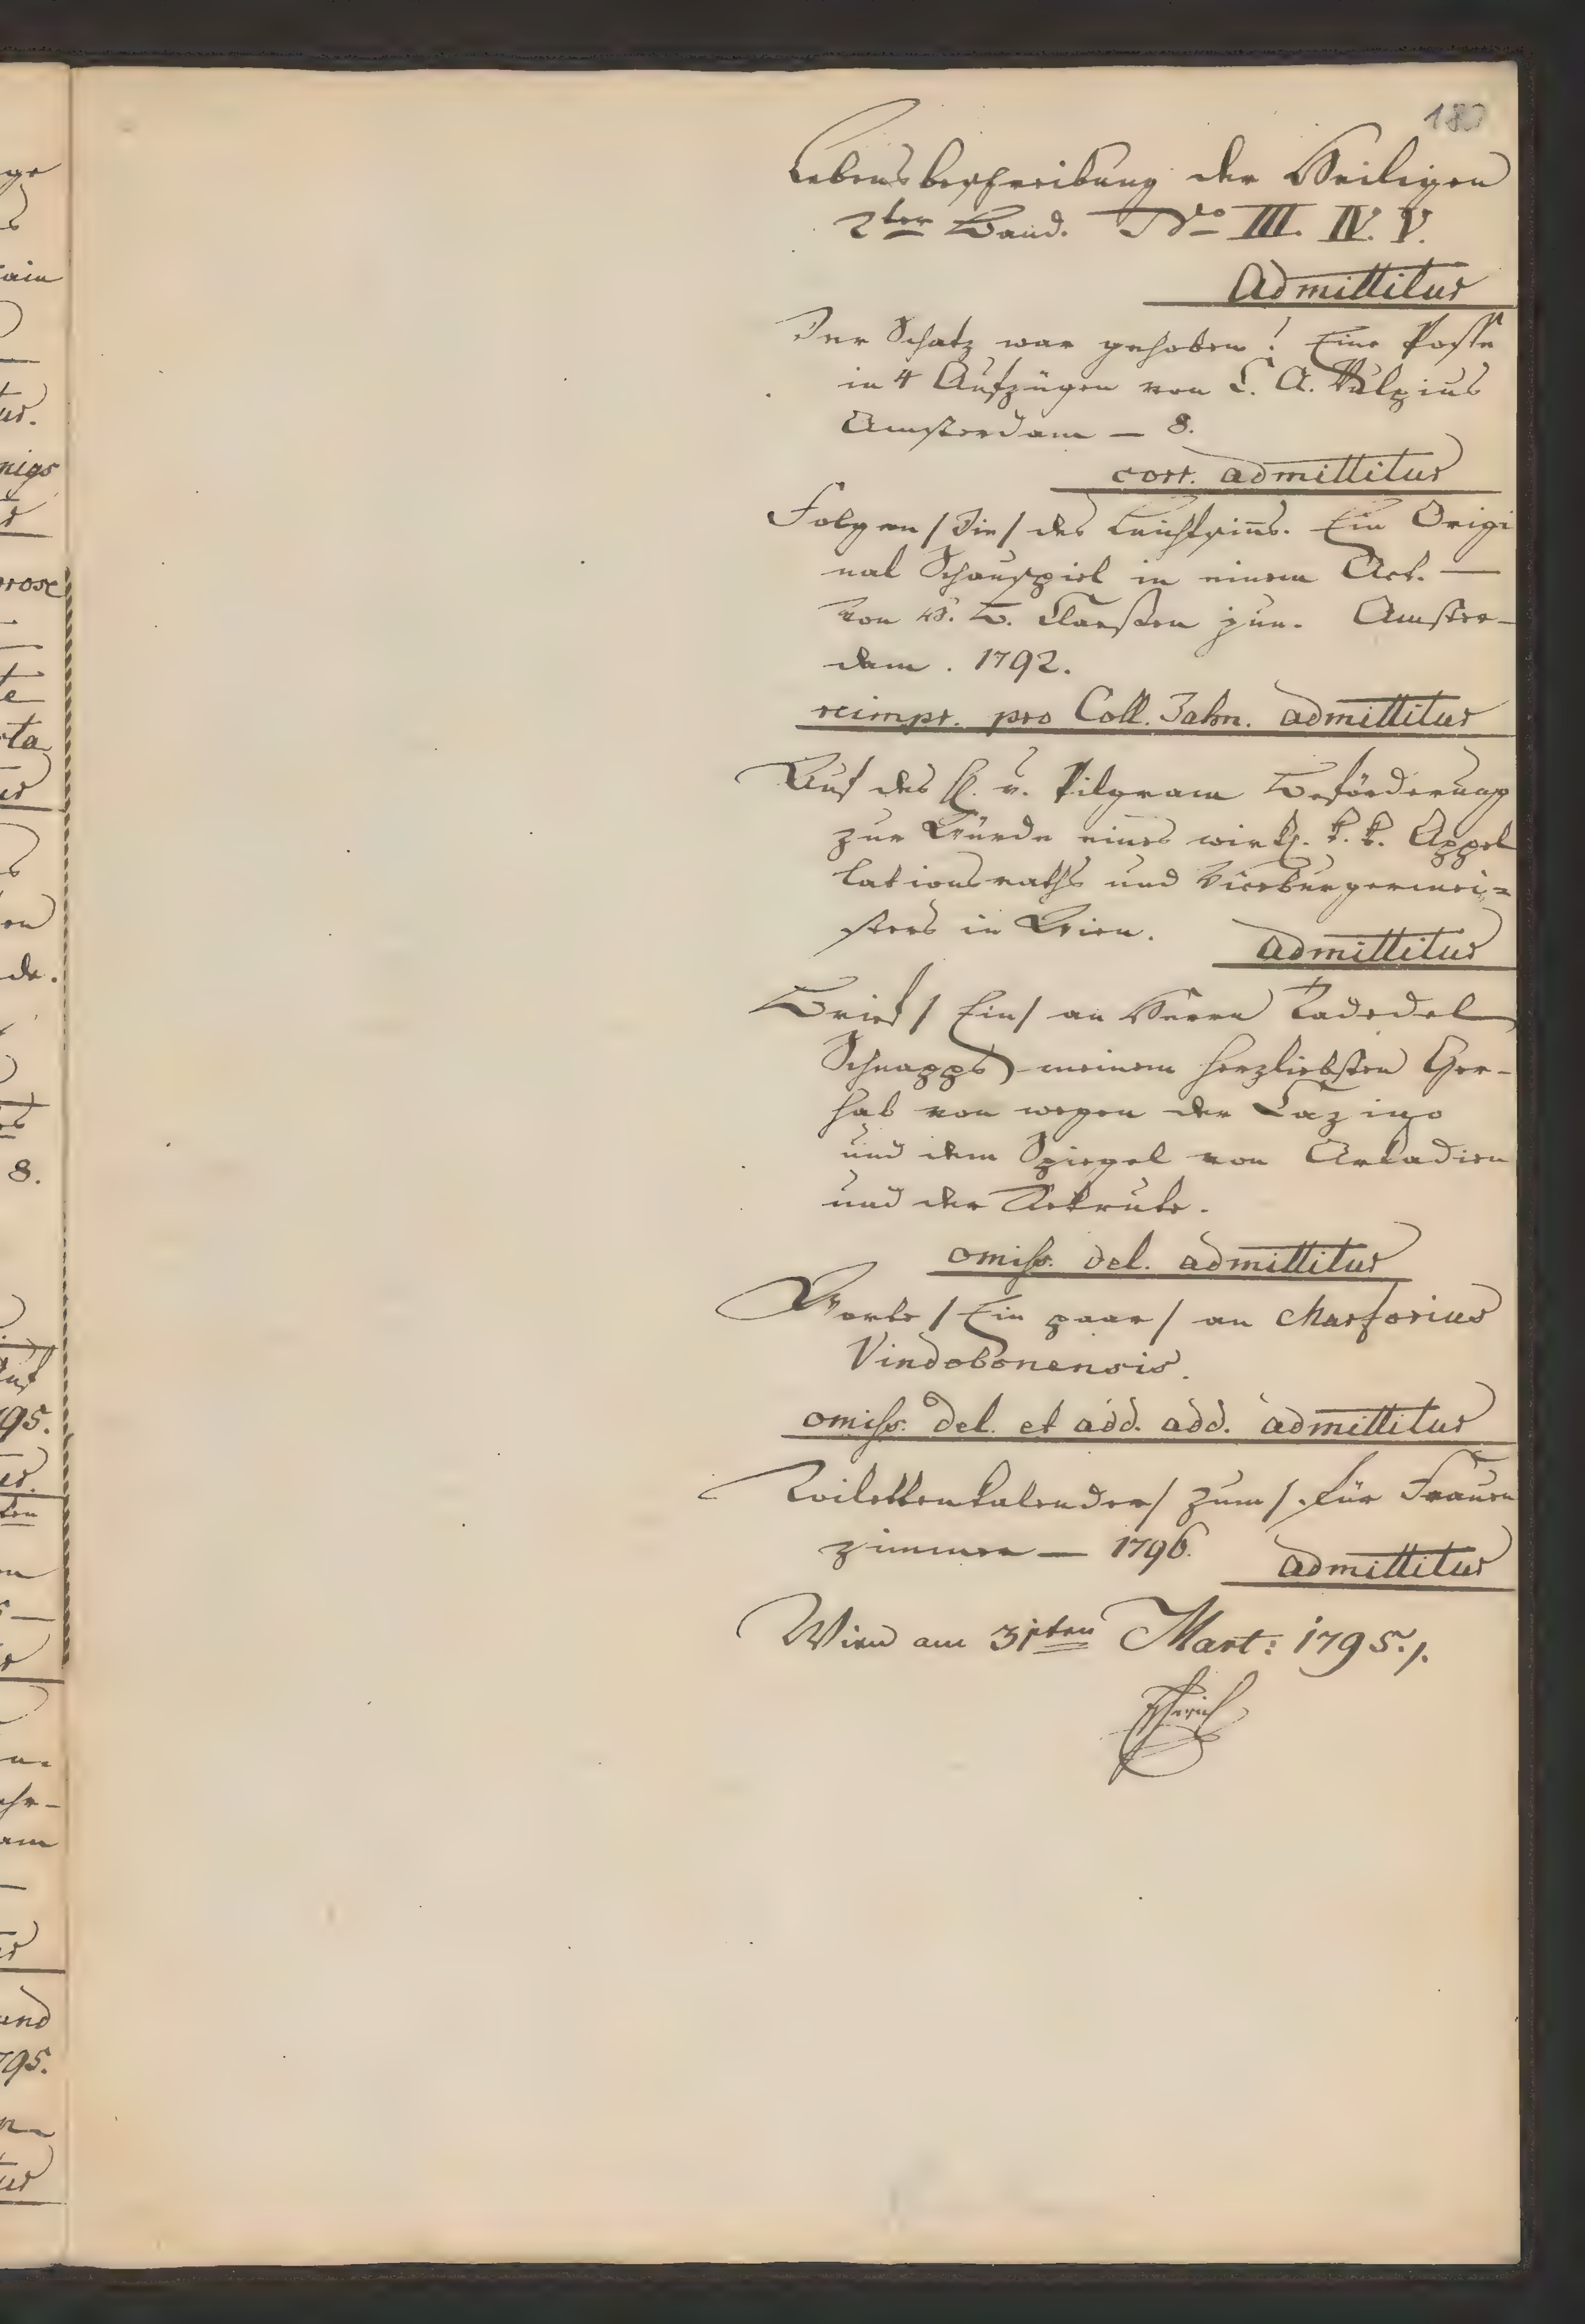 Lebensbeschreibung der Heiligen
2ter Band. No III. IV. V.
Admittitur
Der Schatz war gehoben! Eine Posse
in 4 Aufzügen von C. A. Vulpius
Amsterdam — 8.
corr. admittitur
Folgen / Die / des Leichtsinns. Ein Origi
nal Schauspiel in einem Act. —
von B. Clarßen jun. Amster-
dam. 1792.
reimpr. pro Coll. Jahn. admittitur
Auf des H. v. Pilgram Beförderung
zur Würde eines wirkl. k. k. Appel
lationsraths und Vicebürgermei=
sters in Wien.
admittitur
Brief / Ein / an Herrn Tadedel
Schnapps meinem herzliebsten Ger-
hab von wegen der Lazingo
und dem Spiegel von Arkadien
und der Rekrute.
omiss. del. admittitur
Worte / Ein paar / an Marforius
Vindobonensis.
omiss. del. et add. add. admittitur
Toilettenkalender / zum / für Frauen
zimmer — 1796.
admittitur
Wien am 31sten Mart: 1795.